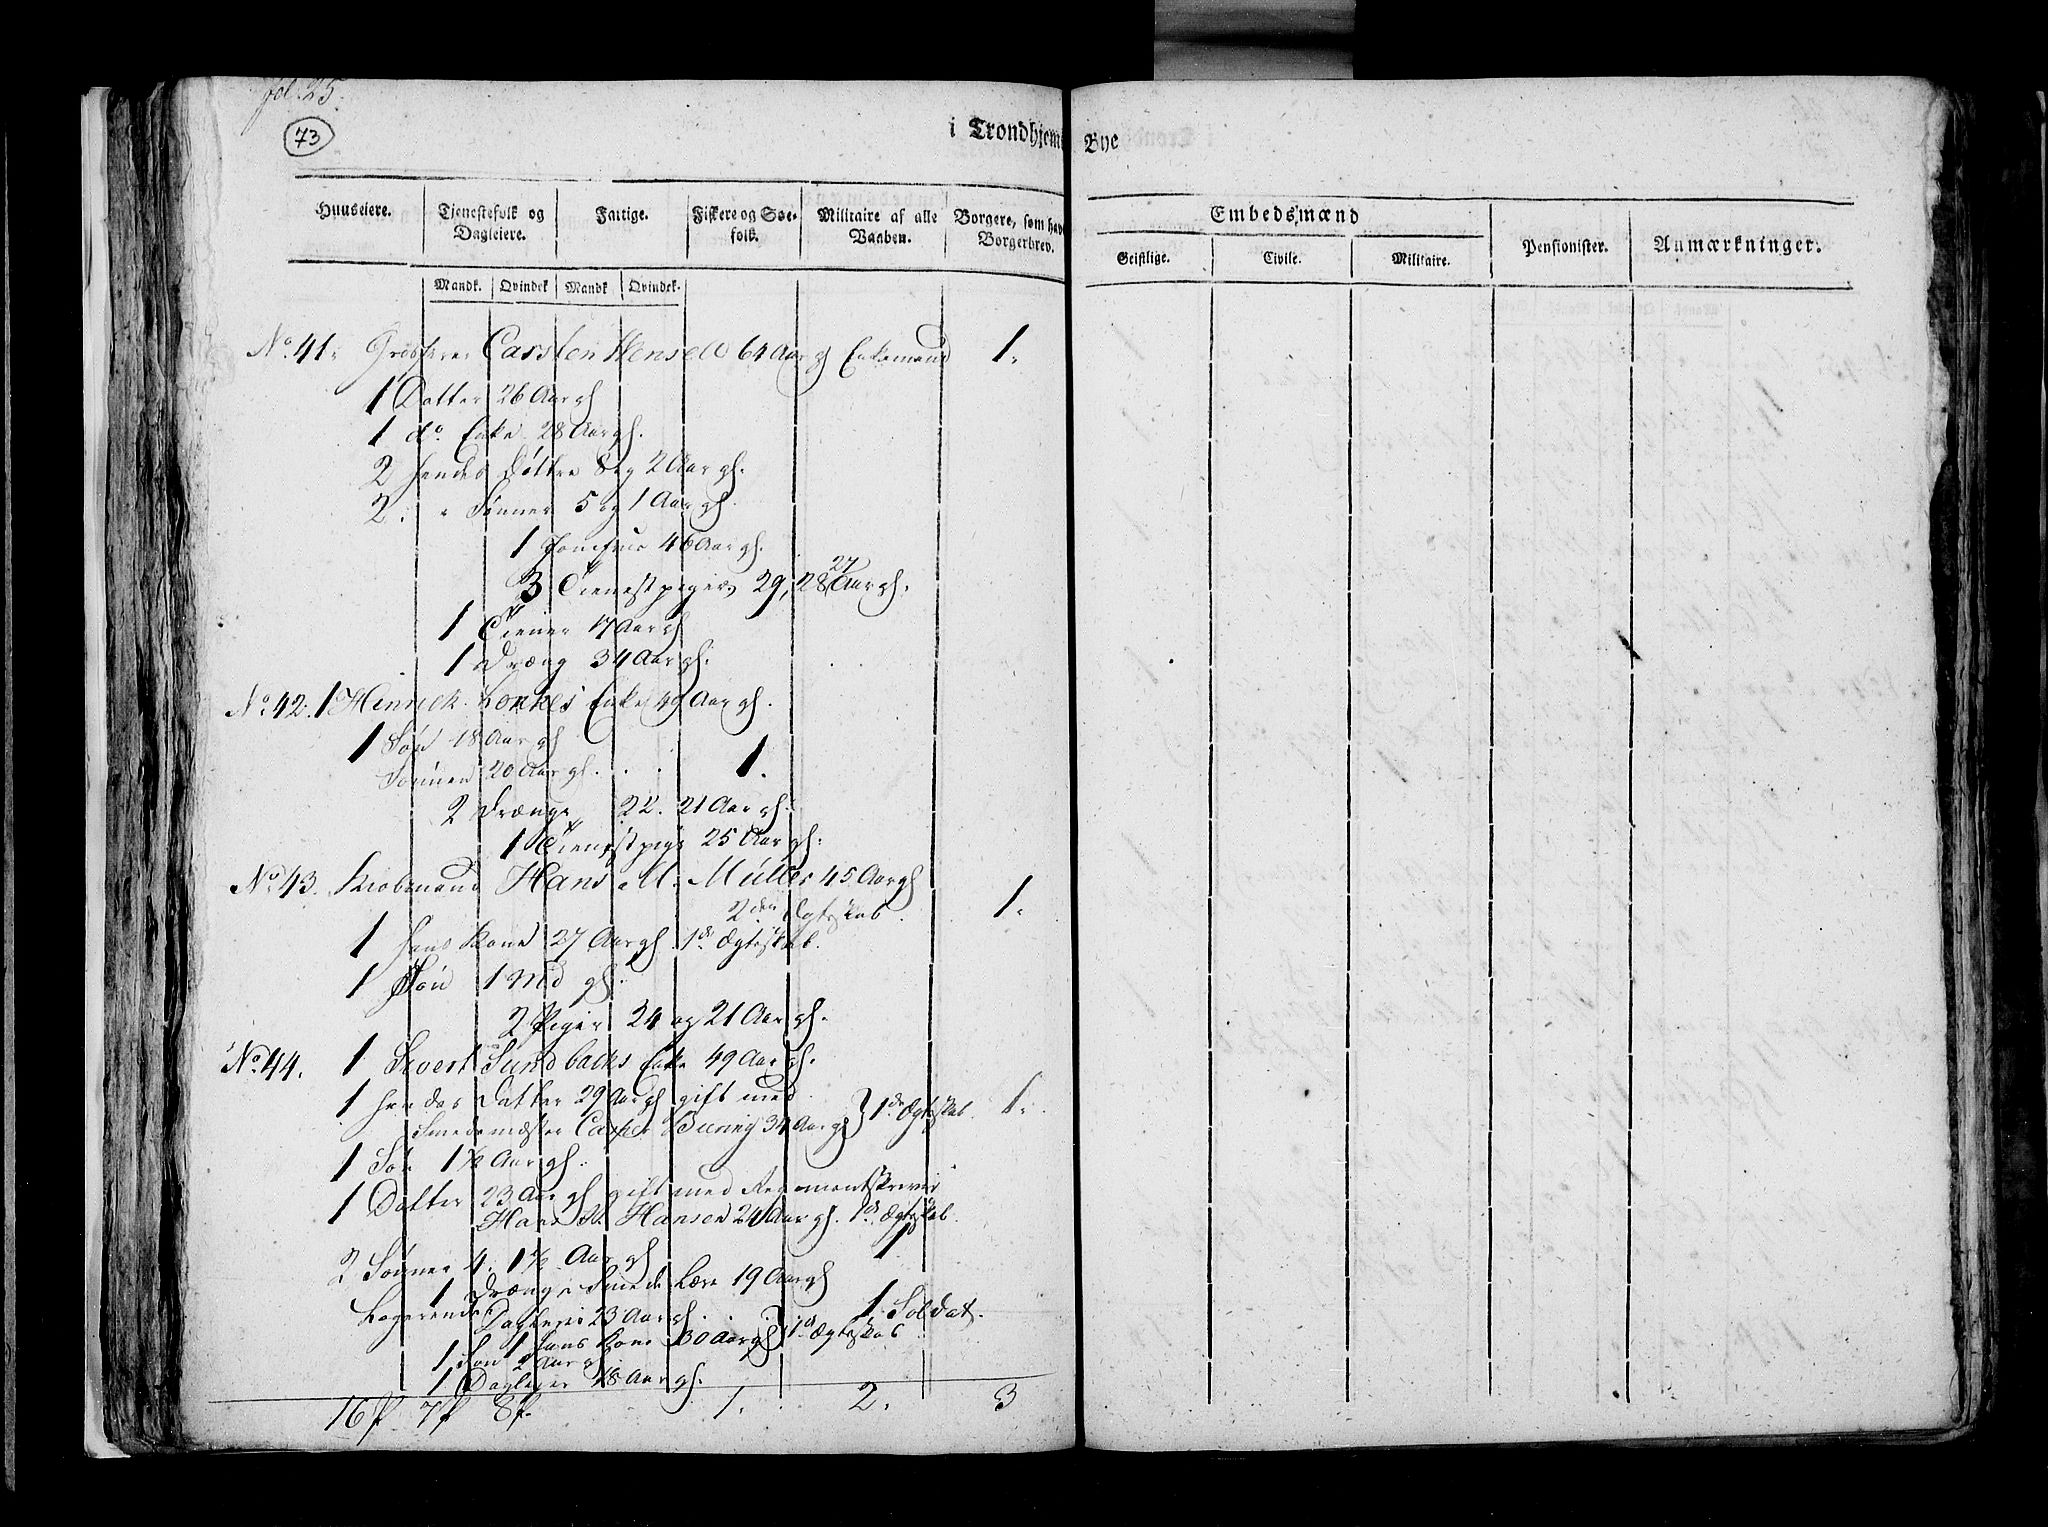 fol. 25.
73
i Trondhjems Bye
Huuseiere.
Tjenestefolk og Dagleiere.
Fattige.
Fiskere og Søefolk.
Militaire af alle Vaaben.
Borgere, som have Borgerbrev.
Embedsmænd
Pensionister.
Anmærkninger.
Geistlige.
Civile.
Militaire.
Mandk. Qvindek Mandk Qvindek.
No. 41. Grosserer Carsten Hensell 64 Aar gl Enkemand 1.
1 Datter 26 Aar gl
1 do. Enke 28 Aar gl.
2 hendes Døttre 8 og 2 Aar gl.
2. " Sønner 5 og 1 Aar gl.
1 Jomfrue 46 Aar gl.
3 Tienestpiger 29, 28 27 Aar gl.
1 Tiener 17 Aar gl
1 Dræng 34 Aar gl.
No. 42. 1 Hinrick Lorkes Enke 49 Aar gl.
1 Søn 18 Aar gl
Sønnen 20 Aar gl. . . 1.
2 Drænge 22. 21 Aar gl.
1 Tienestpige 25 Aar gl.
No. 43. Kiøbmand Hans M. Müller 45 Aar gl
2den Ægteskab. 1.
1 hans Kone 27 Aar gl. 1de Ægteskab.
1 Søn 1 Md gl.
2 Piger 24 og 21 Aar gl.
No. 44. 1 Sivert Sundbacks Enke 49 Aar gl.
1 hendes Datter 29 Aar gl gift med
Smedemester Casper Buring 34 Aar gl } 1de Ægteskab. 1.
1 Søn 1 1/2 Aar gl.
1 Datter 23 Aar gl gift med Regimentskriver
Hans N. Hansen 24 Aar gl. 1de Ægteskab.
1
2 Sønner 4. 1 1/2 Aar gl
1 Dræng i Smede Lære 19 Aar gl
Logerende Dagleier 23 Aar gl. 1. Soldat.
1 hans Kone 30 Aar gl } 1de Ægteskab
1 Søn 2 Aar gl
1 Dagleier 18 Aar gl.
16 p 7 p 8 p. 1. 2. 3